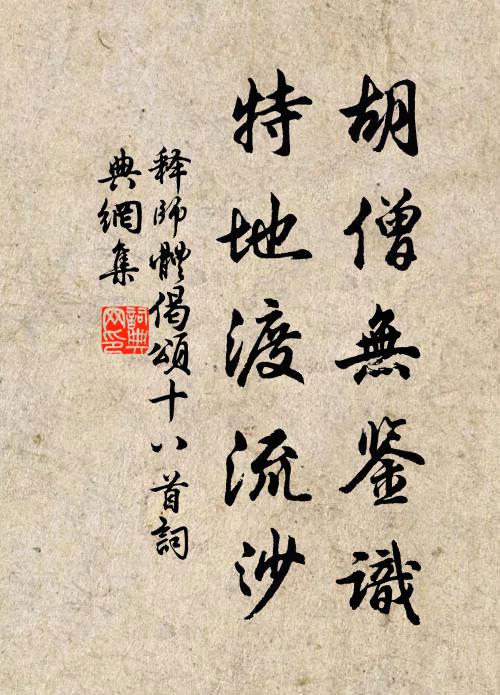 胡僧無鉴識
特地渡流沙
释師體偈頌十八首詞
典網集
詞典网印